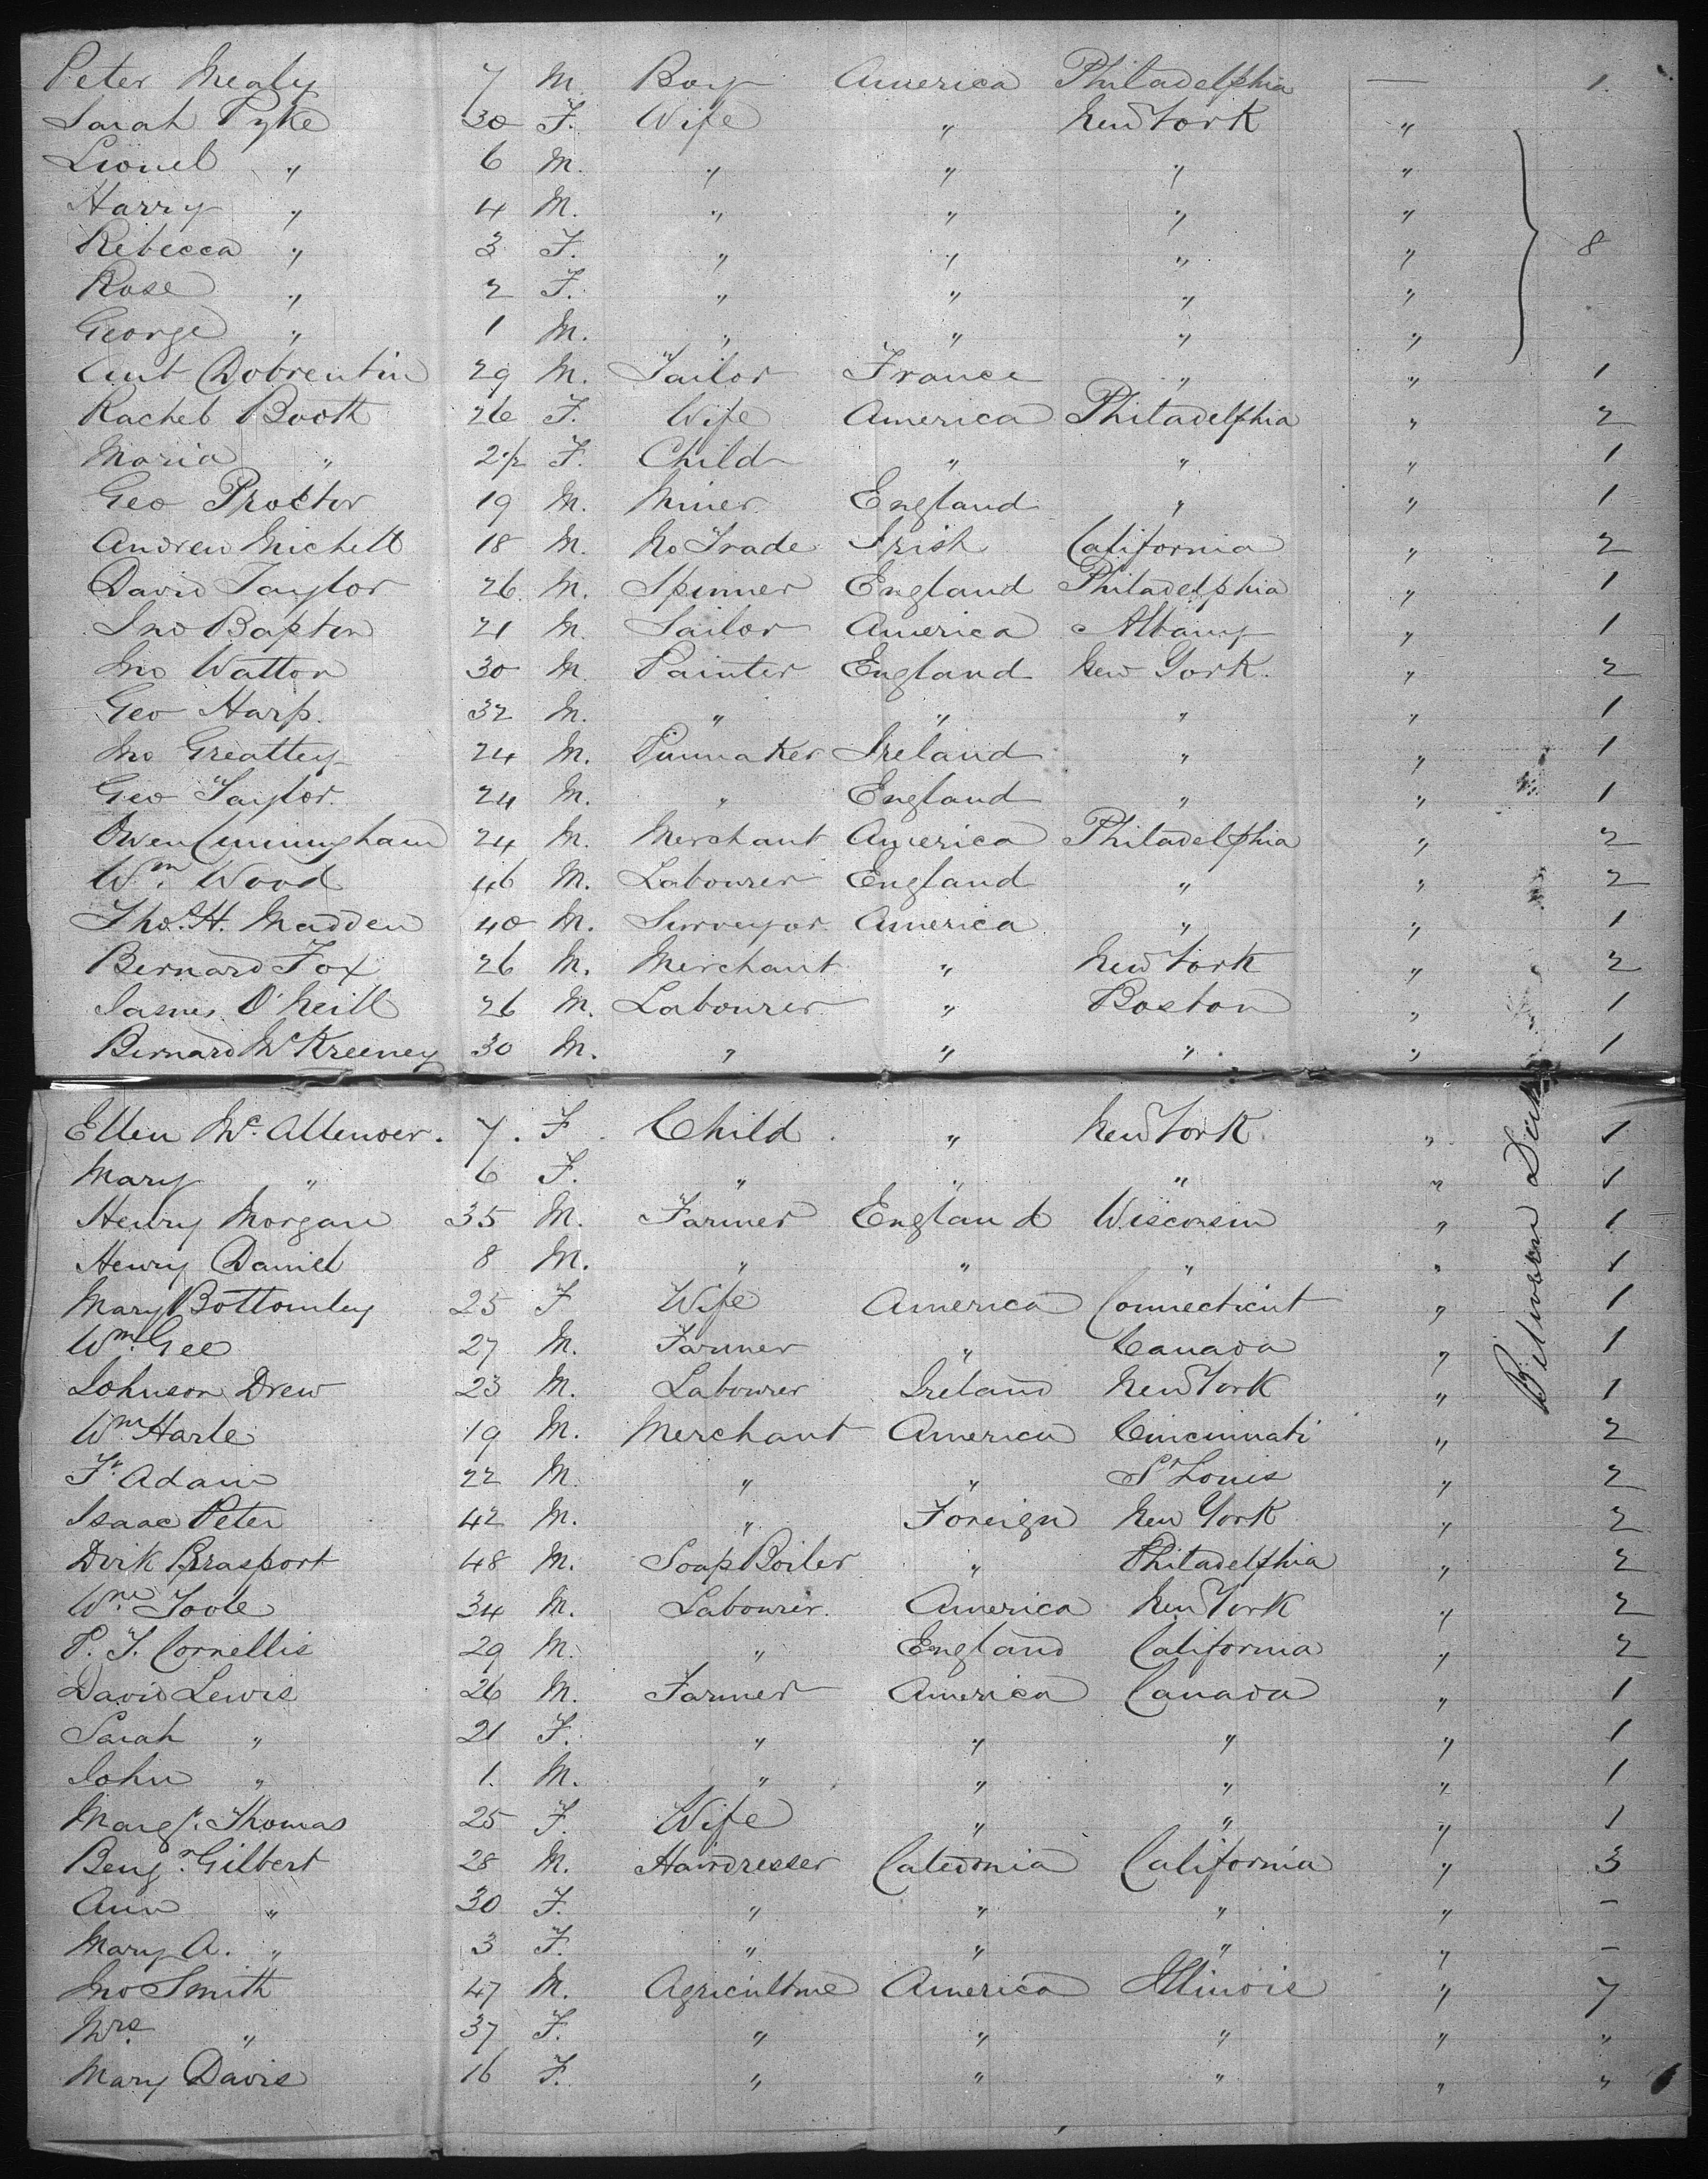 Peter Mealy 7 M. Boy America Philadelphia — 1.
Sarah Pyke 30 F. Wife " New York "
Lionel " 6 M. " " " "
Harry " 4 M. " " " "
Rebecca " 3 F. " " " " 8
Rose " 2 F. " " " "
George " 1 M. " " " "
Ant Dobrentin 29 M. Tailor France " " 1
Rachel Booth 26 F. Wife America Philadelphia " 2
Maria " 2½ F. Child " " " 1
Geo Proctor 19 M. Miner England " " 1
Andrew Michell 18 M. No Trade Irish California " 2
David Taylor 26 M. Spinner England Philadelphia " 1
Jno Bapton 21 M. Sailor America Albany " 1
Jno Watton 30 M. Painter England New York. " 2
Geo Harp. 32 M. " " " " 1
Jno Greatley 24 M. Pinmaker Ireland " " 1
Geo Taylor. 24 M. " England " " 1
Owen Cunningham 24 M. Merchant America Philadelphia " 2
Wm. Wood 46 M. Labourer England " " 2
Thos. H. Madden 40 M. Surveyor America " " 1
Bernard Fox 26 M. Merchant " New York " 2
James O'Neill 26 M. Labourer " Boston " 1
Bernard McKreeney 30 M. " " " " 1
Ellen Mc. Allender. 7. F. Child. " New York. " 1
Mary " 6 F. " " " " 1
Henry Morgan 35 M. Farmer England Wisconsin " 1
Henry Daniel 8 M. " " " " 1
Mary Bottomley 25 F Wife America Connecticut " 1
Wm. Gee 27 M. Farmer " Canada " 1
Johnson Drew 23 M. Labourer Ireland New York " 1
Wm Harle 19 M. Merchant America Cincinnati " 2
Fr. Adam 22 M. " " St Louis " 2
Isaac Peter 42 M. " Foreign New York " 2
Dirk Brasport 48 M. Soap Boiler " Philadelphia " 2
Wm. Toole 34 M. Labourer. America New York " 2
P. T. Cornellis 29 M. " England California " 2
David Lewis 26 M. Farmer America Canada " 1
Sarah " 21 F. " " " " 1
John " 1. M. " " " " 1
Margt. Thomas 25 F. Wife " " " 1
Benjn. Gilbert 28 M. Hairdresser Caledonia California " 3
Ann " 30 F. " " " " –
Mary A. " 3 F. " " " " –
Jno Smith 47 M. Agriculture America Illinois " 7
Mrs. " 37 F. " " " " "
Mary Davis 16 F. " " " " "
Between Deck